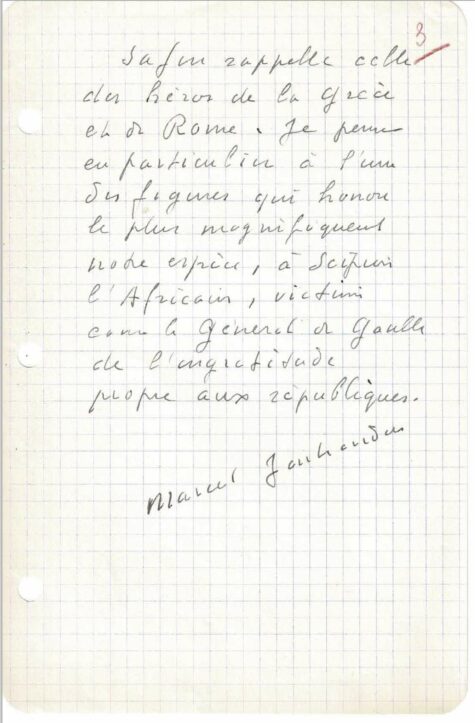 3
Sa fin rappelle celle
des héros de la Grèce
et de Rome. Je pense
en particulier à l'une
des figures qui honore
le plus magnifiquement
notre espèce, à Scipion
l'Africain, victime
comme le Général de Gaulle
de l'ingratitude
propre aux républiques.
Marcel Jouhandeau